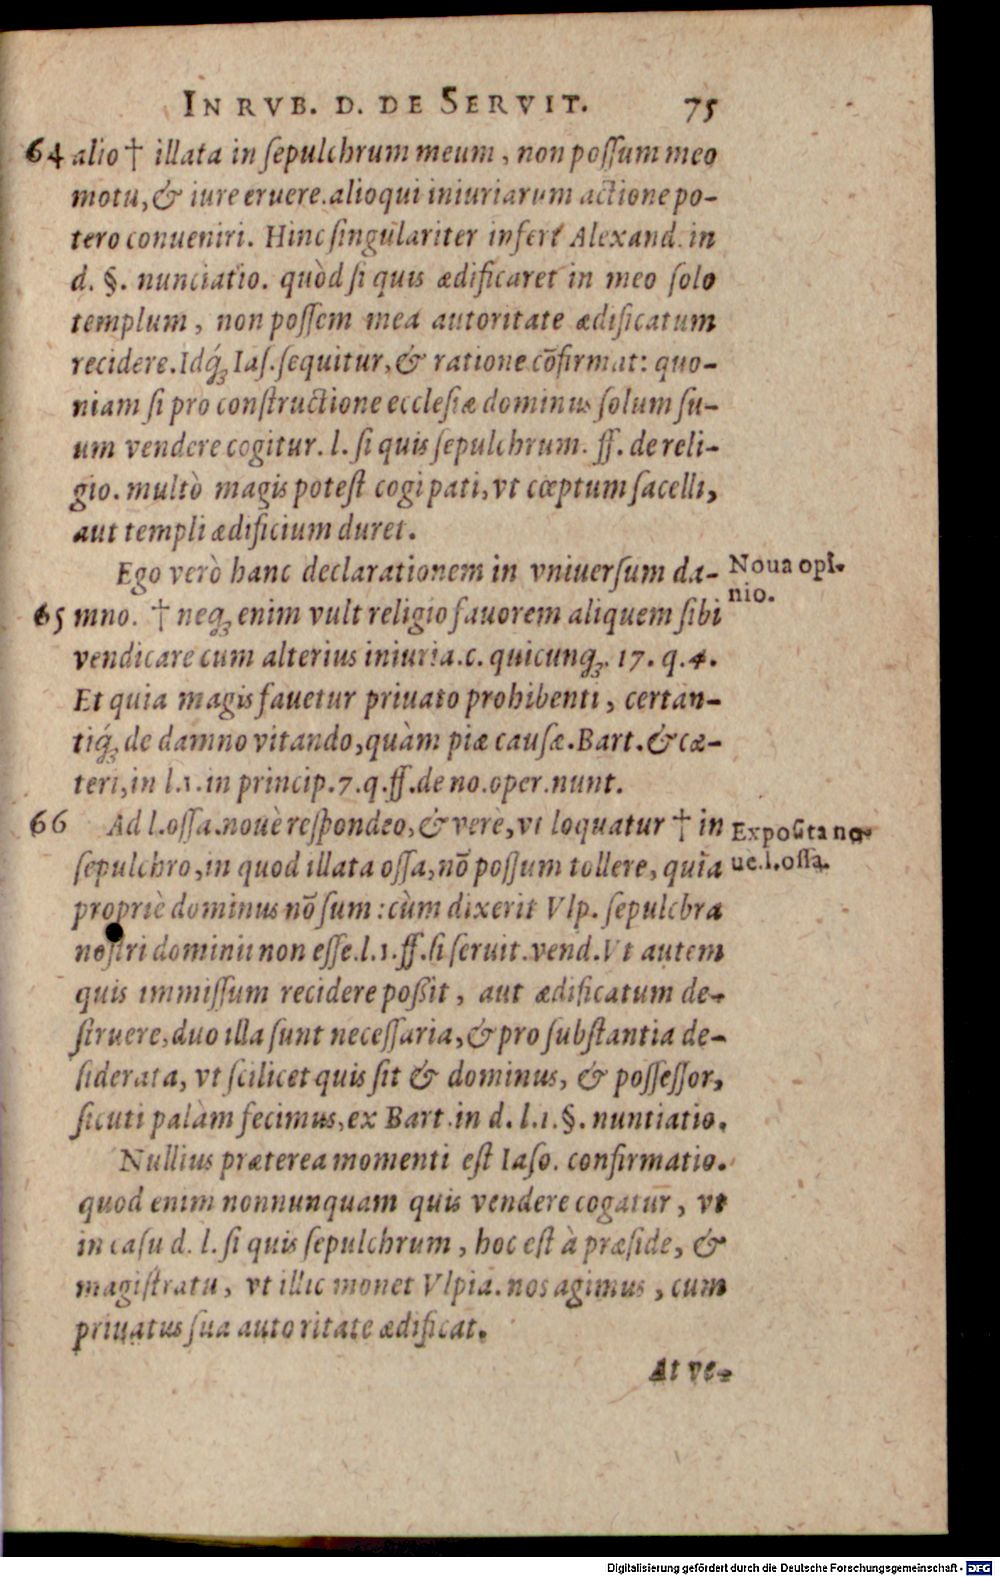 IN RVB. D. DE SERVIT. 75
64 alio † illata in ſepulchrum meum, non poſſum meo
motu, & iure eruere. alioqui iniuriarum actione po-
tero conueniri. Hinc ſingulariter infert Alexand. in
d. §. nunciatio. quòd ſi quis ædificaret in meo ſolo
templum, non poſſem mea autoritate ædificatum
recidere. Idq́ꝫ Iaſ. ſequitur, & ratione cōfirmat: quo-
niam ſi pro conſtructione eccleſiæ dominus ſolum ſu-
um vendere cogitur. l. ſi quis ſepulchrum. ff. de reli-
gio. multò magis poteſt cogi pati, vt cœptum ſacelli,
aut templi ædificium duret.
Ego verò hanc declarationem in vniuerſum da-
Noua opi-
nio.
65 mno. † neqꝫ enim vult religio fauorem aliquem ſibi
vendicare cum alterius iniuria. c. quicunqꝫ. 17. q. 4.
Et quia magis fauetur priuato prohibenti, certan-
tiq́ꝫ de damno vitando, quàm piæ cauſæ. Bart. & cæ-
teri, in l. 1. in princip. 7. q. ff. de no. oper. nunt.
66 Ad l. oſſa. nouè reſpondeo, & verè, vt loquatur † in
Expoſita no-
ue. l. oſſa.
ſepulchro, in quod illata oſſa, nō poſſum tollere, quia
propriè dominus nō ſum: cùm dixerit Vlp. ſepulchra
noſtri dominii non eſſe. l. 1. ff. ſi ſeruit. vend. Vt autem
quis immiſſum recidere poßit, aut ædificatum de-
ſtruere, duo illa ſunt neceſſaria, & pro ſubſtantia de-
ſiderata, vt ſcilicet quis ſit & dominus, & poſſeſſor,
ſicuti palàm fecimus, ex Bart. in d. l. 1. §. nuntiatio.
Nullius præterea momenti eſt Iaſo. confirmatio.
quod enim nonnunquam quis vendere cogatur, vt
in caſu d. l. ſi quis ſepulchrum, hoc eſt à præſide, &
magiſtratu, vt illic monet Vlpia. nos agimus, cum
priuatus ſua autoritate ædificat.
At ve-
Digitalisierung gefördert durch die Deutsche Forschungsgemeinschaft - DFG